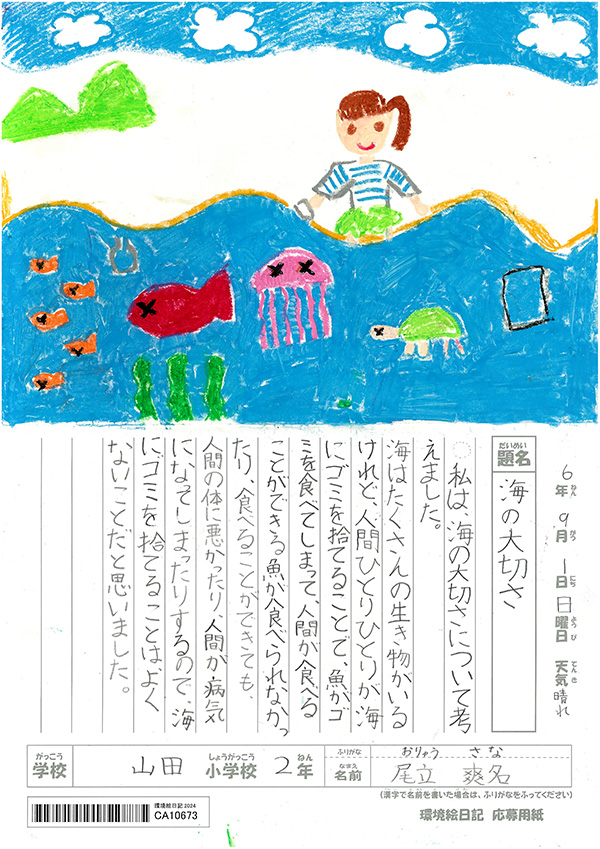 6年 9月 1日 日曜日 天気 晴れ
ねん がつ にち ようび てんき
だいめい
題名
海の大切さ
私は、海の大切さについて考
えました。
海はたくさんの生き物がいる
けれど、人間ひとりひとりが海
にゴミを捨てることで、魚がゴ
ミを食べてしまって、人間が食べる
ことができる魚が食べられなかっ
たり、食べることができても、
人間の体に悪かったり、人間が病気
になってしまったりするので、海
にゴミを捨てることは、よく
ないことだと思いました。
がっこう
学校
山田
しょうがっこう
小学校
2年
ねん
ふりがな
おりゅう さな
なまえ
名前
尾立 爽名
(漢字で名前を書いた場合は、ふりがなをふってください)
環境絵日記2024
CA10673
環境絵日記 応募用紙